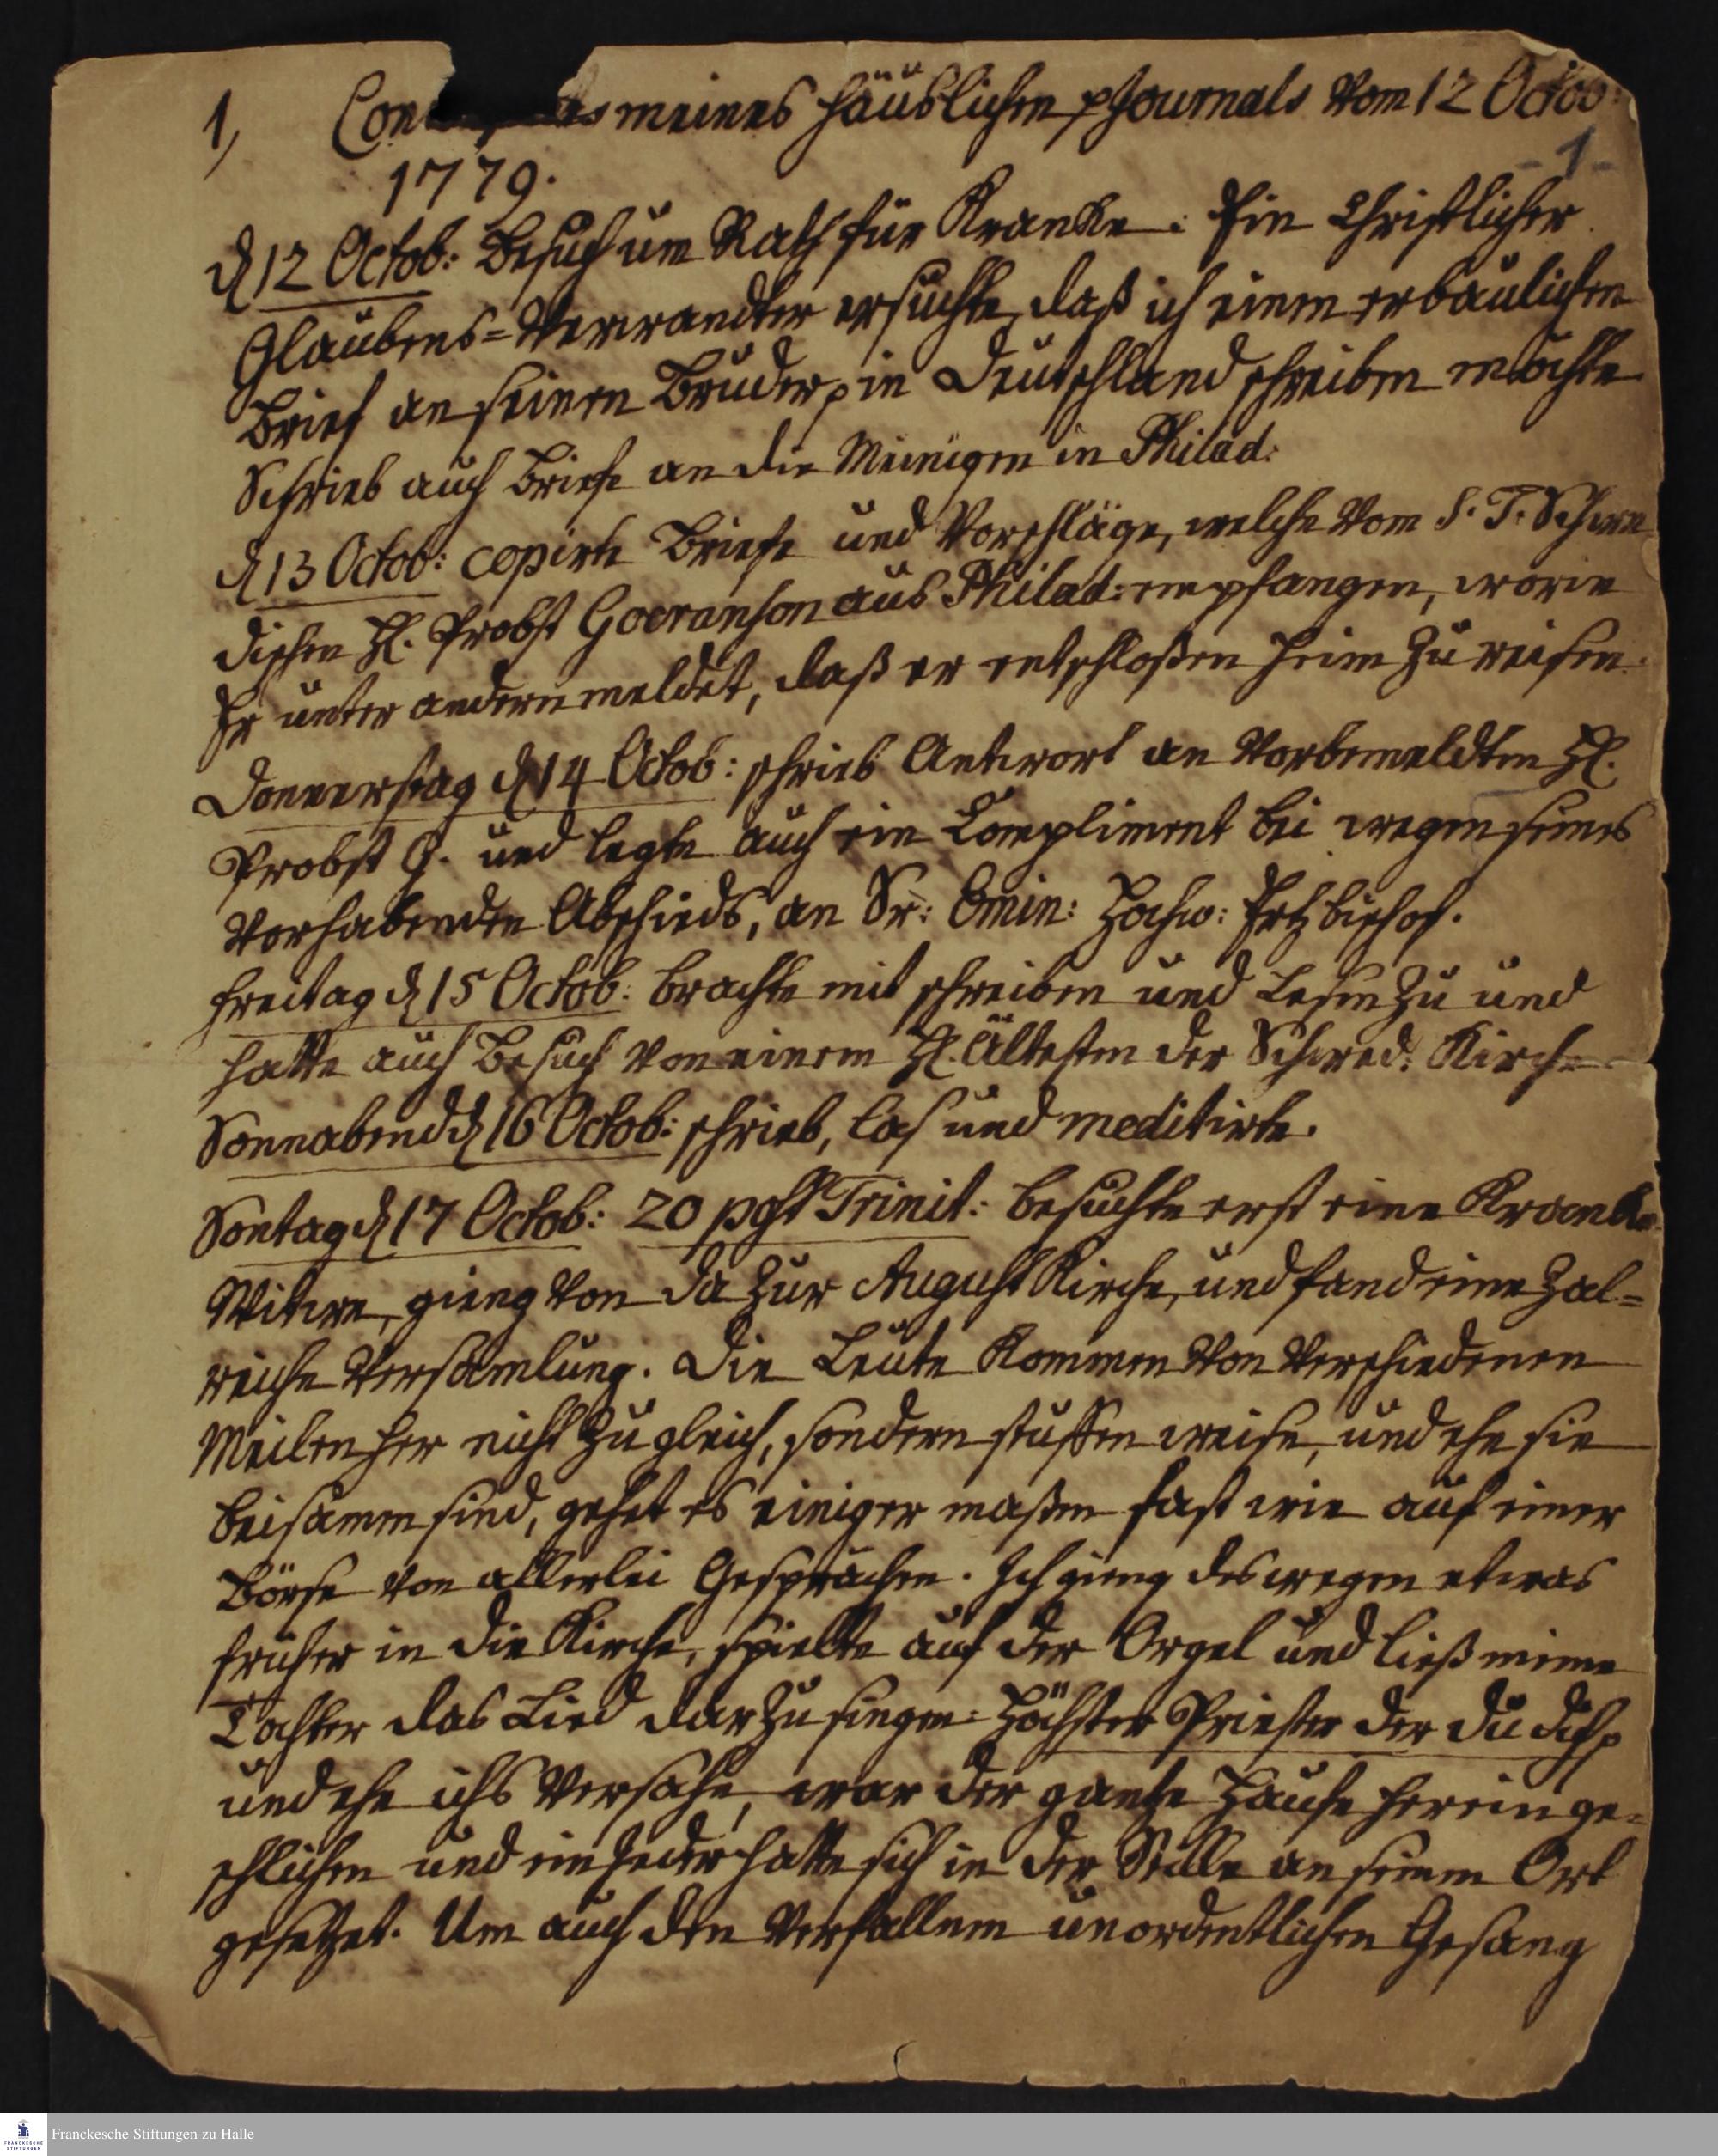 1, Con meines häuslichen p Journals vom 12 Octob:
1779.
- 1 -
d 12 Octob: Besuch um Rath für Kranke. Ein Christlicher
Glaubens=Verwandter ersuchte, daß ich einen erbaulichen
Brief an seinen Bruder p in Deutschland schreiben möchte
Schrieb auch Briefe an die Meinigen in Philad:
d 13 Octob: copirte Briefe und Vorschläge, welche vom S. T. Schwe
dischen H. Probst Goeranson aus Philad: empfangen, worin
Er unter andern meldet, daß er entschloßen heim zu reisen.
Donnerstag d 14 Octob: schrieb Antwort an Vorbemeldten H.
Probst G. und legte auch ein Compliment bei wegen seines
vorhabenden Abschieds, an Sr: Emin: Hochw: Ertzbischof.
Freitag d 15 Octob: brachte mit schreiben und Lesen zu und
hatte auch Besuch von einem H. Ältesten der Schwed: Kirche
Sonnabend d 16 Octob: schrieb, las und meditirte.
Sontag d 17 Octob: 20 post Trinit: besuchte erst eine Krancke
Witwe, gieng von da zur August Kirche, und fand eine Zal=
reiche Versamlung. Die Leute kommen von verschiedenen
Meilen her nicht zugleich, sondern stuffen weise, und ehe sie
beisamen sind, gehet es einiger maßen fast wie auf einer
Börse von allerlei Gesprächen. Ich gieng deswegen etwas
früher in die Kirche, spielte auf der Orgel und ließ meine
Tochter das Lied darzu singen: Höchster Priester der du dich p
und ehe ichs versahe, war der gantze Haufe herein ge=
schlichen und ein Jeder hatte sich in der Stille an seinen Ort
gesetzet. Um auch den verfallenen unordentlichen Gesang
Franckesche Stiftungen zu Halle
FRANCKESCHE
STIFTUNGEN